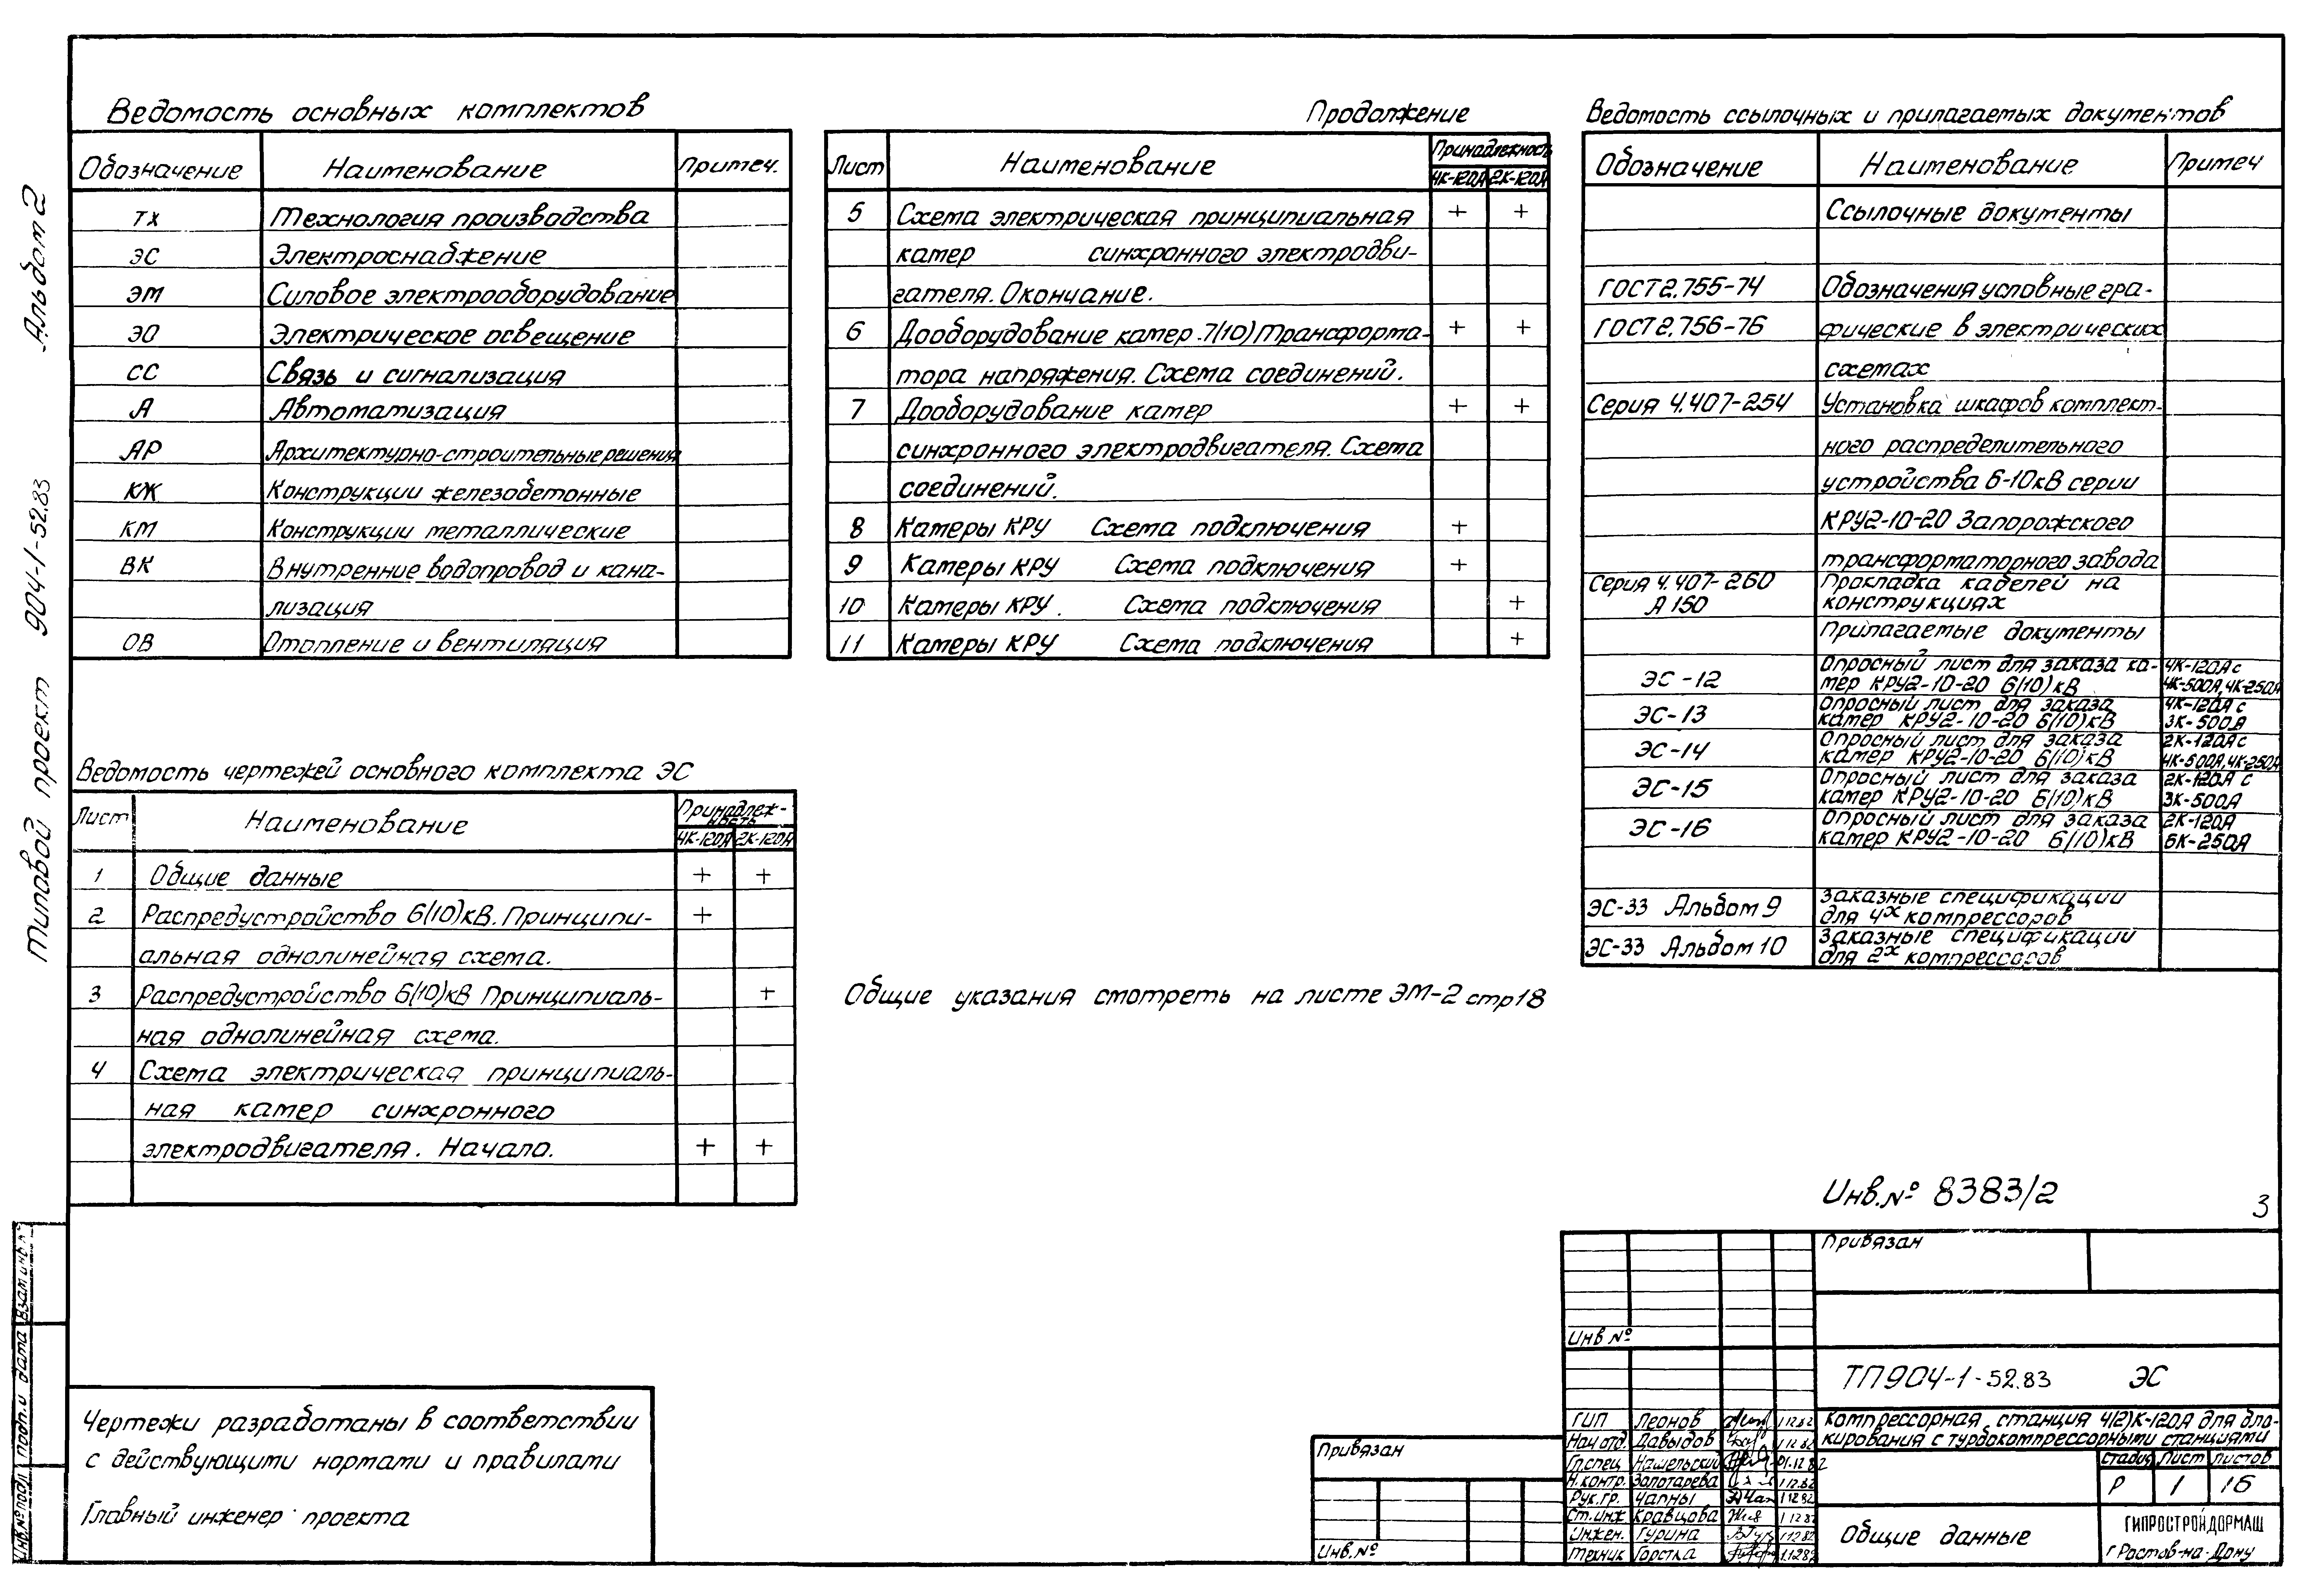 Альбом 2
Типовой проект 904-1-52.83
Ведомость основных комплектов
Обозначение Наименование Примеч.
ТХ Технология производства
ЭС Электроснабжение
ЭМ Силовое электрооборудование
ЭО Электрическое освещение
СС Связь и сигнализация
А Автоматизация
АР Архитектурно-строительные решения
КЖ Конструкции железобетонные
КМ Конструкции металлические
ВК Внутренние водопровод и кана-
лизация
ОВ Отопление и вентиляция
Ведомость чертежей основного комплекта ЭС
Лист Наименование Принадлеж-
ность
4К-120А 2К-120А
1 Общие данные + +
2 Распредустройство 6(10)кВ. Принципи- +
альная однолинейная схема.
3 Распредустройство 6(10)кВ Принципиаль- +
ная однолинейная схема.
4 Схема электрическая принципиаль-
ная камер синхронного
электродвигателя. Начало. + +
Продолжение
Лист Наименование Принадлежность
4К-120А 2К-120А
5 Схема электрическая принципиальная + +
камер синхронного электродви-
гателя. Окончание.
6 Дооборудование камер 7(10) Трансформа- + +
тора напряжения. Схема соединений.
7 Дооборудование камер + +
синхронного электродвигателя. Схема
соединений.
8 Камеры КРУ Схема подключения +
9 Камеры КРУ Схема подключения +
10 Камеры КРУ. Схема подключения +
11 Камеры КРУ Схема подключения +
Общие указания смотреть на листе ЭМ-2 стр 18
Ведомость ссылочных и прилагаемых документов
Обозначение Наименование Примеч
Ссылочные документы
ГОСТ 2.755-74 Обозначения условные гра-
ГОСТ 2.756-76 фические в электрических
схемах
Серия 4.407-254 Установка шкафов комплект-
ного распределительного
устройства 6-10кВ серии
КРУ2-10-20 Запорожского
трансформаторного завода
Серия 4.407-260 Прокладка кабелей на
А 150 конструкциях
Прилагаемые документы
ЭС-12 Опросный лист для заказа ка- 4К-120А с
мер КРУ2-10-20 6(10)кВ 4К-500А, 4К-250А
ЭС-13 Опросный лист для заказа 4К-120А с
камер КРУ2-10-20 6(10)кВ 3К-500А
ЭС-14 Опросный лист для заказа 2К-120А с
камер КРУ2-10-20 6(10)кВ 4К-500А, 4К-250А
ЭС-15 Опросный лист для заказа 2К-120А с
камер КРУ2-10-20 6(10)кВ 3К-500А
ЭС-16 Опросный лист для заказа 2К-120А
камер КРУ2-10-20 6(10)кВ 6К-250А
ЭС-33 Альбом 9 Заказные спецификации
для 4х компрессоров
ЭС-33 Альбом 10 Заказные спецификации
для 2х компрессоров
Инв.№ 8383/2
3
Чертежи разработаны в соответствии
с действующими нормами и правилами
Главный инженер проекта
Инв.№ подл Подп. и дата Взам инв №
Привязан
Инв.№
Привязан
Инв №
ТП904-1-52.83 ЭС
ГИП Леонов 1.12.82
Нач отд. Давыдов 1.12.82
Гл.спец Нашельский 01.12.82
Н.контр. Золотарева 1.12.82
Рук.гр. Чапны 1.12.82
Ст.инж Кравцова 1.12.82
Инжен. Гурина 1.12.82
Техник Горстка 1.12.82
Компрессорная станция 4(2)К-120А для бло-
кирования с турбокомпрессорными станциями
Стадия Лист Листов
Р 1 16
Общие данные
ГИПРОСТРОЙДОРМАШ
г Ростов-на-Дону